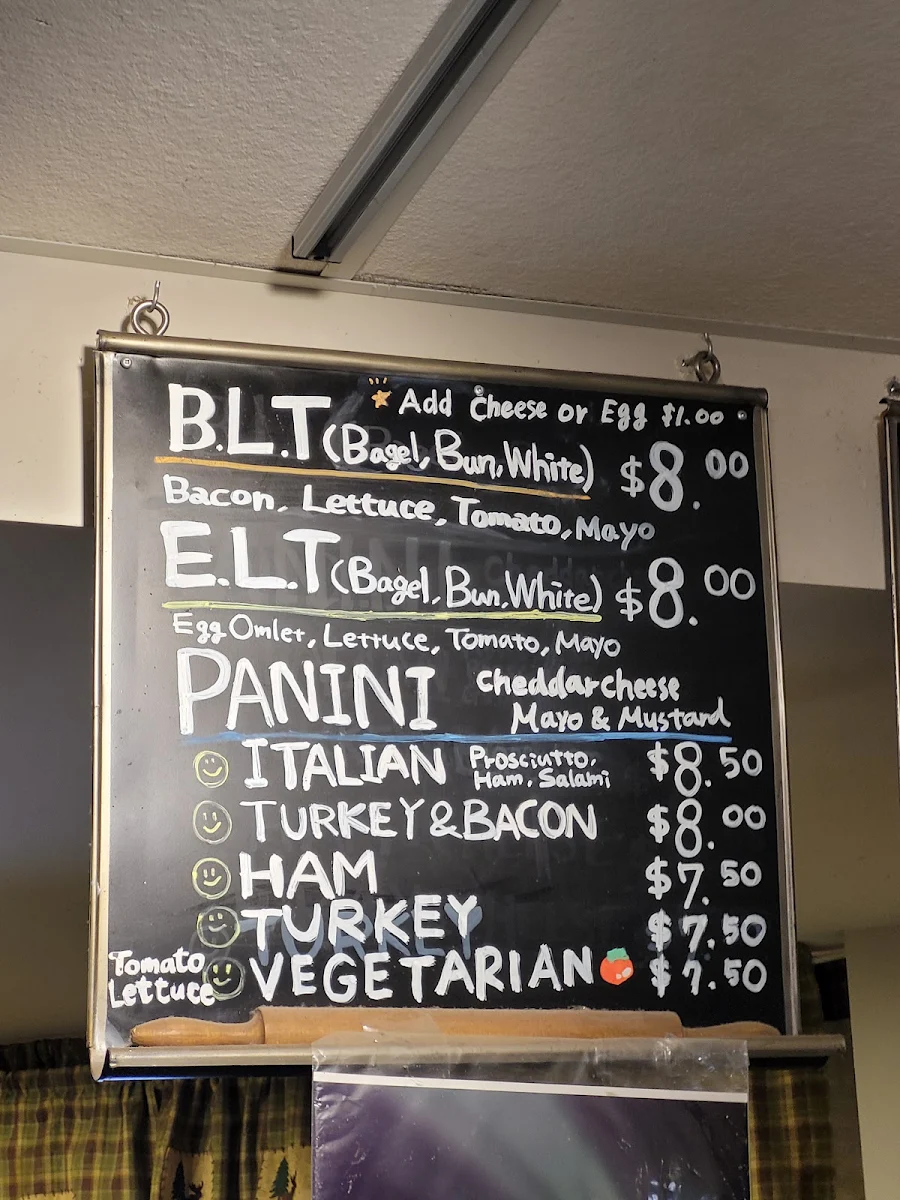 B.L.T (Bagel, Bun, White) $8.00
Add cheese or Egg $1.00
Bacon, Lettuce, Tomato, Mayo
E.L.T (Bagel, Bun, White) $8.00
Egg Omlet, Lettuce, Tomato, Mayo
PANINI
cheddarcheese
Mayo & Mustard
ITALIAN Prosciutto, Ham, Salami $8.50
TURKEY & BACON $8.00
HAM $7.50
TURKEY $7.50
Tomato Lettuce VEGETARIAN $7.50